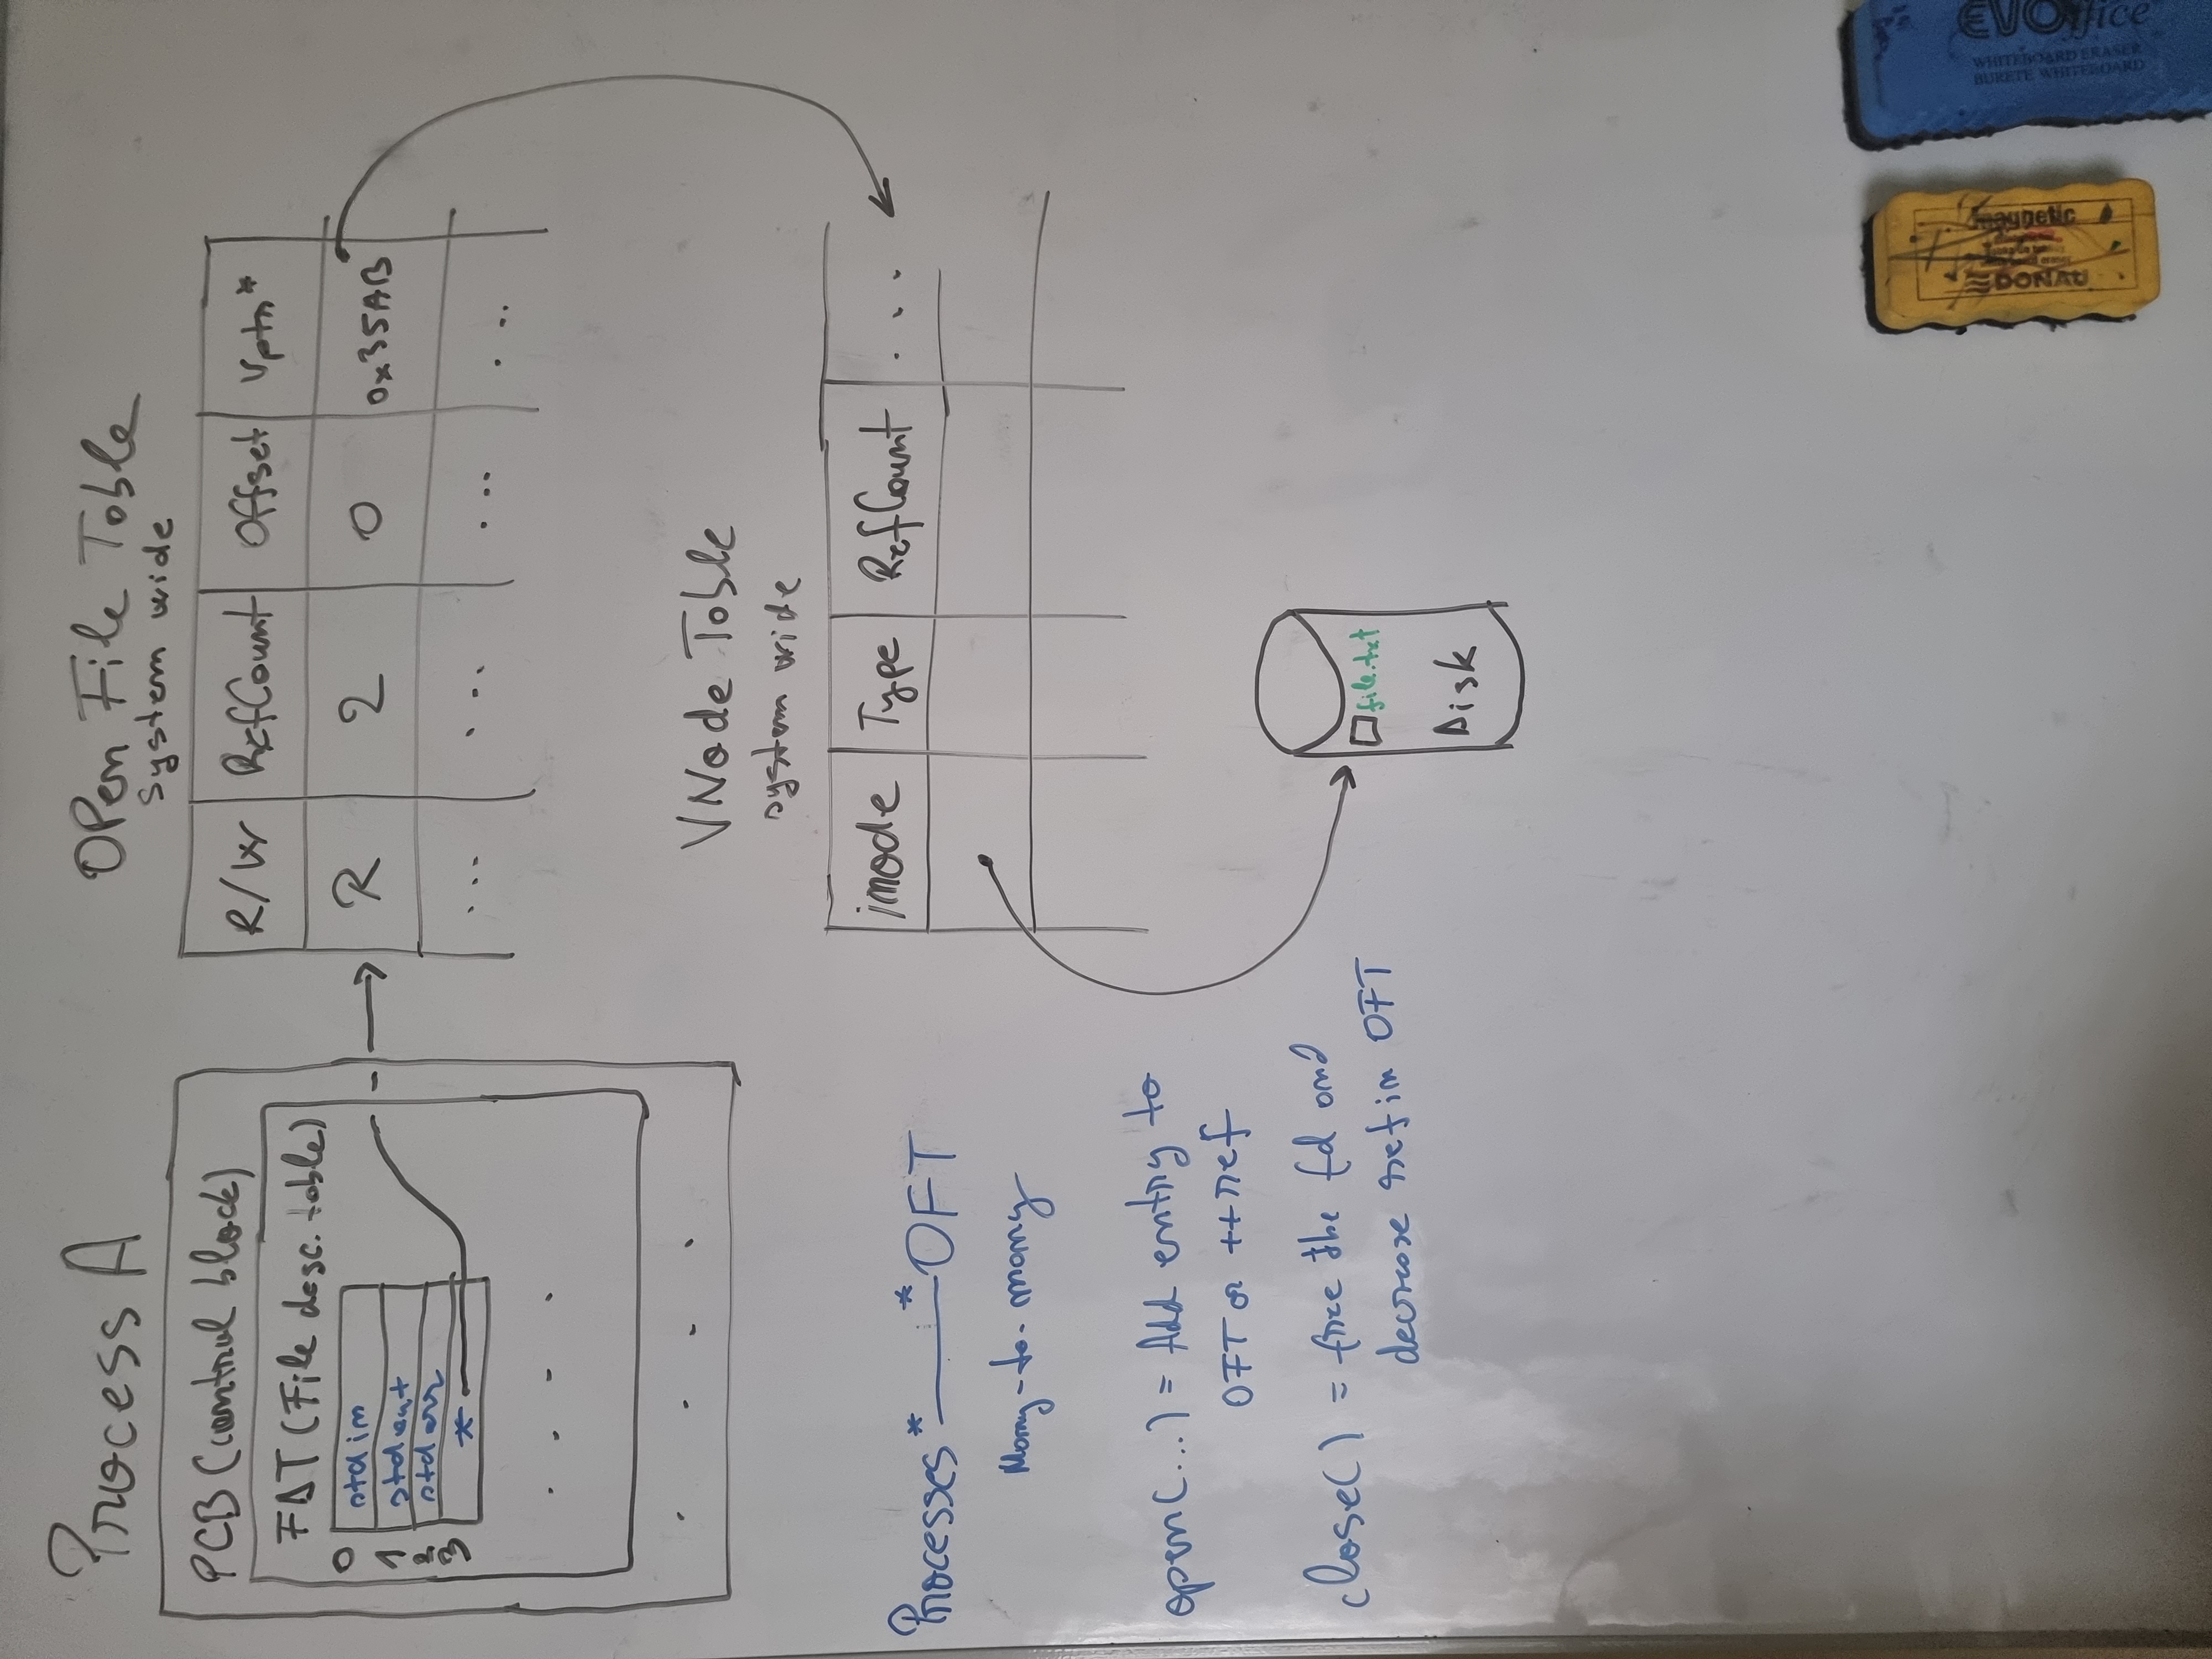 Process A
PCB (control block)
FDT (File desc. table)
0 stdin
1 stdout
2 stderr
3 *
. . . .
. . . .
OPen File Table
system wide
R/W RefCount Offset Vptr*
R 2 0 0x35AB
... ... ... ...
VNode Table
system wide
inode Type RefCount ...
Processes* *OFT
Many-to-many
open(...) = Add entry to
OFT or ++ref
close() = free the fd and
decrease ref in OFT
file.txt
Disk
magnetic
DONAU
EVOffice
WHITEBOARD ERASER
BURETE WHITEBOARD